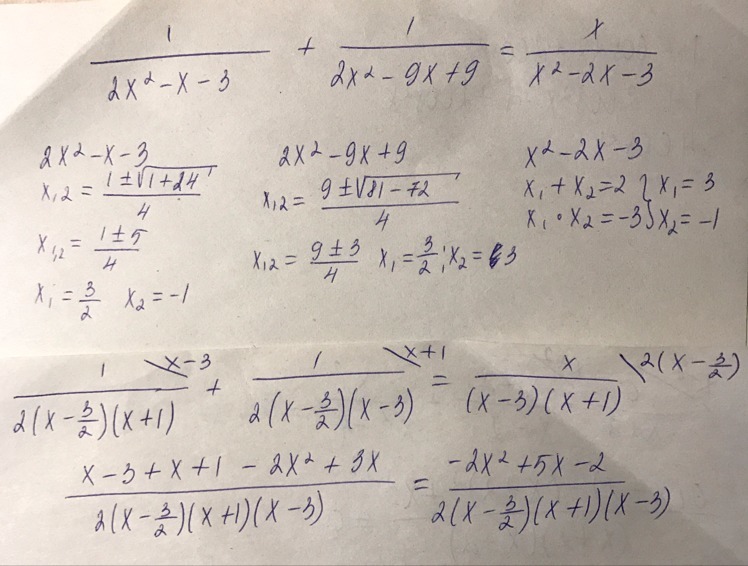 1/(2x² - x - 3) + 1/(2x² - 9x + 9) = x/(x² - 2x - 3)
2x² - x - 3
x₁,₂ = (1 ± √(1 + 24))/4
x₁,₂ = (1 ± 5)/4
x₁ = 3/2 x₂ = -1
2x² - 9x + 9
x₁,₂ = (9 ± √(81 - 72))/4
x₁,₂ = (9 ± 3)/4 x₁ = 3/2; x₂ = 3
x² - 2x - 3
x₁ + x₂ = 2 } x₁ = 3
x₁ · x₂ = -3 } x₂ = -1
1\x-3/(2(x - 3/2)(x + 1)) + 1\x+1/(2(x - 3/2)(x - 3)) = x\2(x - 3/2)/((x - 3)(x + 1))
(x - 3 + x + 1 - 2x² + 3x)/(2(x - 3/2)(x + 1)(x - 3)) = (-2x² + 5x - 2)/(2(x - 3/2)(x + 1)(x - 3))